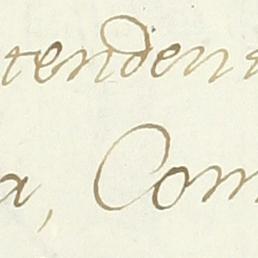 tenden
a, Com